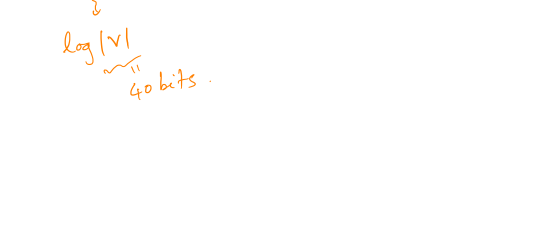 log |V|
=
40 bits.